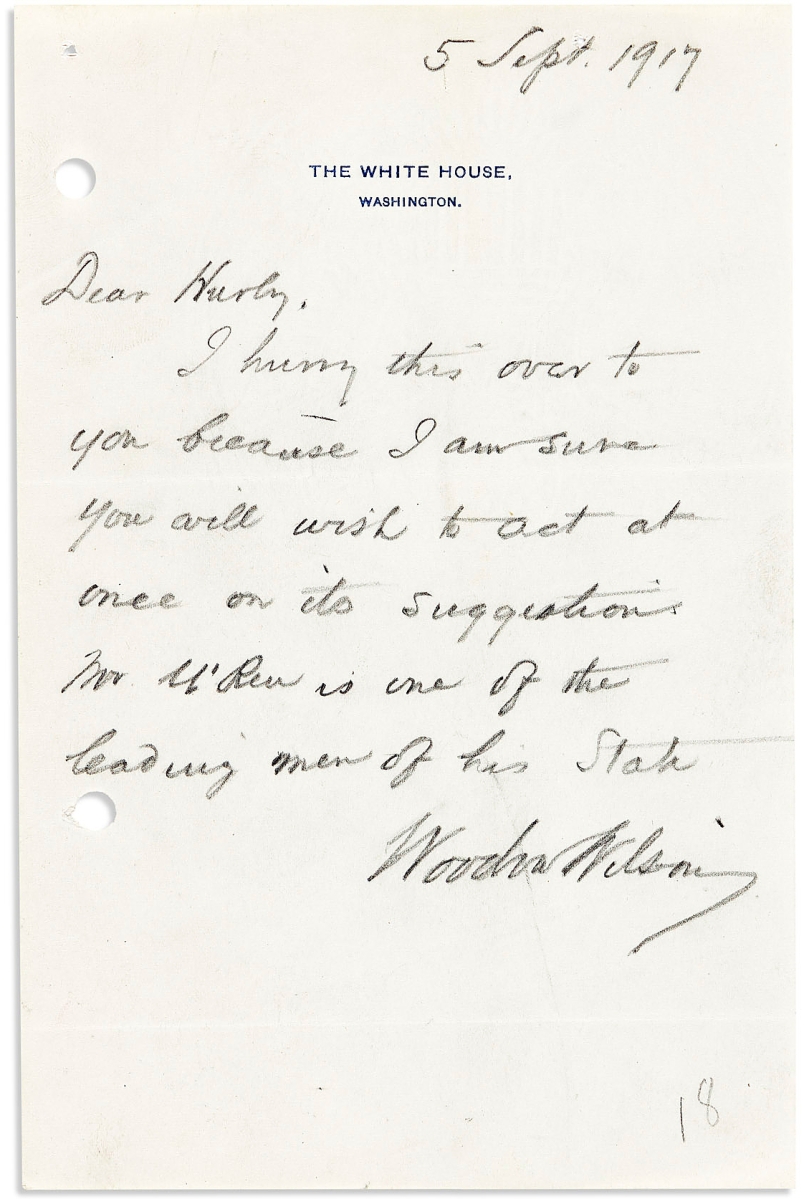 5 Sept. 1917
THE WHITE HOUSE,
WASHINGTON.
Dear Hurley,
I hurry this over to
you because I am sure
you will wish to act at
once on its suggestion.
Mr. U'Ren is one of the
leading men of his State
Woodrow Wilson
18